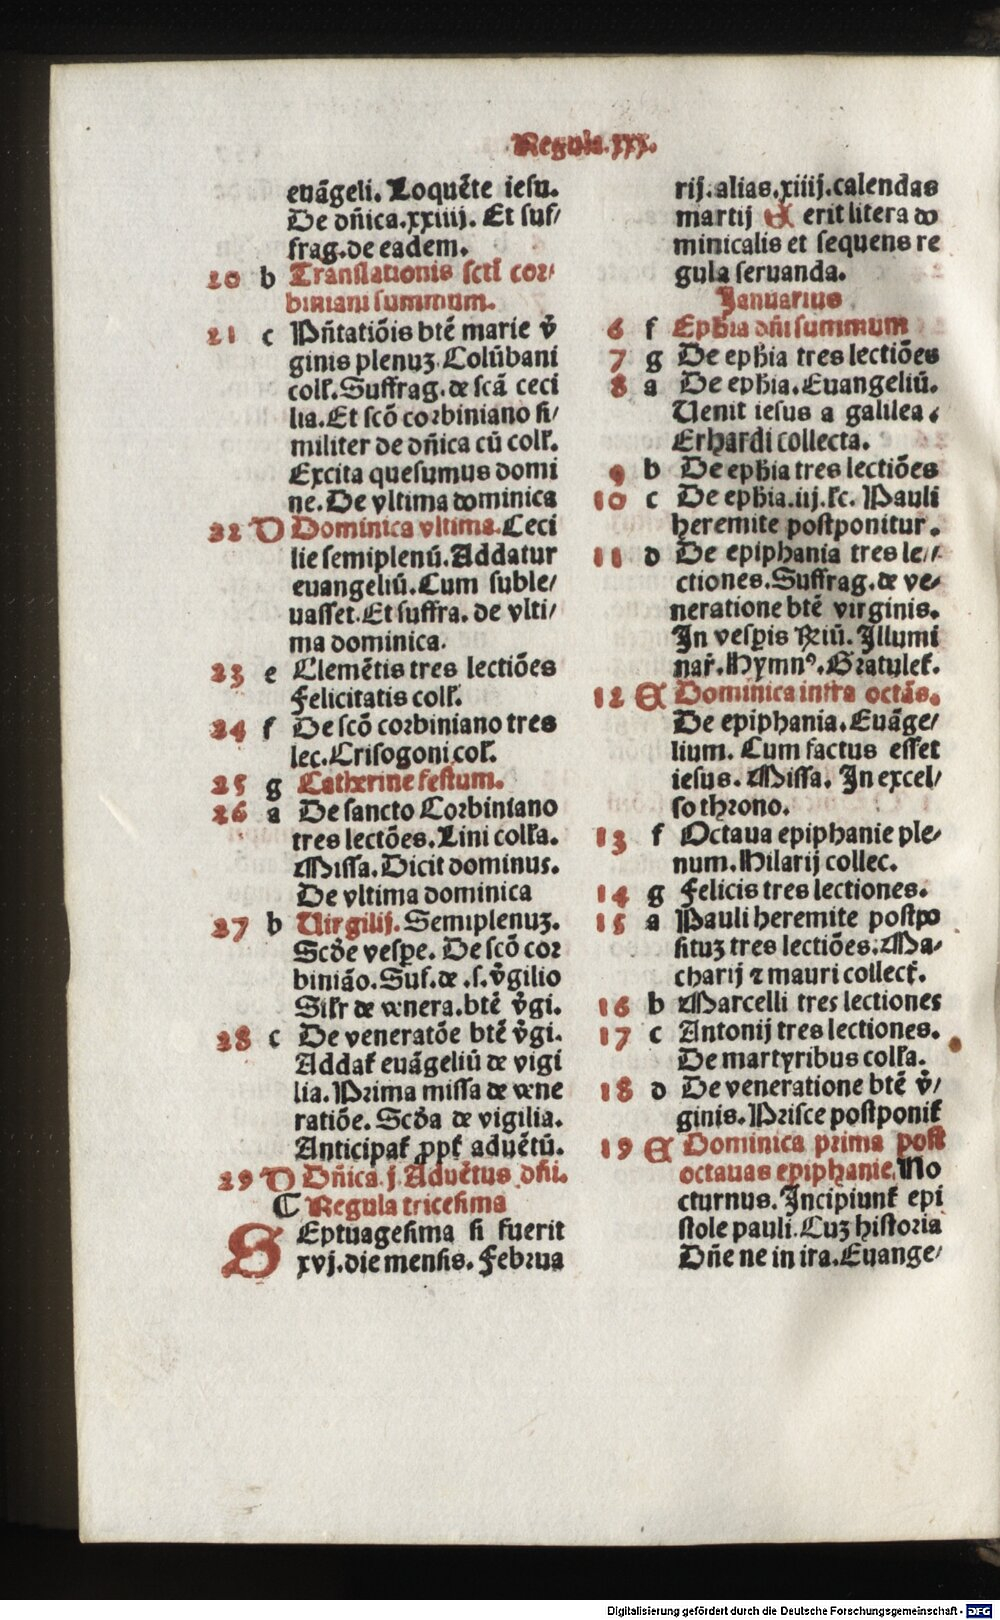 Regula.xxx.
euāgeli. Loquēte iesu.
De dñica.xxiiij. Et suf/
frag.de eadem.
20 b Translationis scti cor/
biniani summum.
21 c Pñtatiōis btē marie v̄
ginis plenuʒ. Colūbani
coll'. Suffrag. de scā ceci
lia. Et scō corbiniano si/
militer de dñica cū coll'.
Excita quesumus domi
ne. De vltima dominica
22 D Dominica vltima. Ceci
lie semiplenū. Addatur
euangeliū. Cum suble/
uasset. Et suffra. de vlti/
ma dominica.
23 e Clemētis tres lectiōes
Felicitatis coll'.
24 f De scō corbiniano tres
lec. Crisogoni col'.
25 g Catherine festum.
26 a De sancto Corbiniano
tres lectōes. Lini coll'a.
Missa. Dicit dominus.
De vltima dominica
27 b Uirgilij. Semiplenuʒ.
Scd'e vespe. De scō cor
biniāo. Suf. de .s. v̄gilio
Sil'r de venera. btē v̄gi.
28 c De veneratōe btē v̄gi.
Addat' euāgeliū de vigi
lia. Prima missa de vene
ratiōe. Scd'a de vigilia.
Anticipat' ppt' aduētū.
29 D Dñica j. Aduētus dñi.
⁋ Regula tricesima
SEptuagesima si fuerit
xvj. die mensis. Februa
rij. alias. xiiij. calendas
martij E erit litera do
minicalis et sequens re
gula seruanda.
Januarius
6 f Ephīa dñi summum
7 g De ephīa tres lectiōes
8 a De ephīa. Euangeliū.
Uenit iesus a galilea.
Erhardi collecta.
9 b De ephīa tres lectiōes
10 c De ephīa. iij. l'c. Pauli
heremite postponitur.
11 d De epiphania tres le//
ctiones. Suffrag. de ve/
neratione btē virginis.
In vespis ℞iū. Illumi
nar̄. Hymnꝰ. Gratulet'.
12 E Dominica infra octās.
De epiphania. Euāge/
lium. Cum factus esset
iesus. Missa. In excel/
so throno.
13 f Octaua epiphanie ple/
num. Hilarij collec.
14 g Felicis tres lectiones.
15 a Pauli heremite postpo
situʒ tres lectiōes. Ma/
charij ⁊ mauri collect'.
16 b Marcelli tres lectiones
17 c Antonij tres lectiones.
De martyribus coll'a.
18 d De veneratione btē v̄/
ginis. Prisce postponit'
19 E Dominica prima post
octauas epiphanie. No
cturnus. Incipiunt' epi
stole pauli. Cuʒ historia
Dñe ne in ira. Euange/
Digitalisierung gefördert durch die Deutsche Forschungsgemeinschaft - DFG